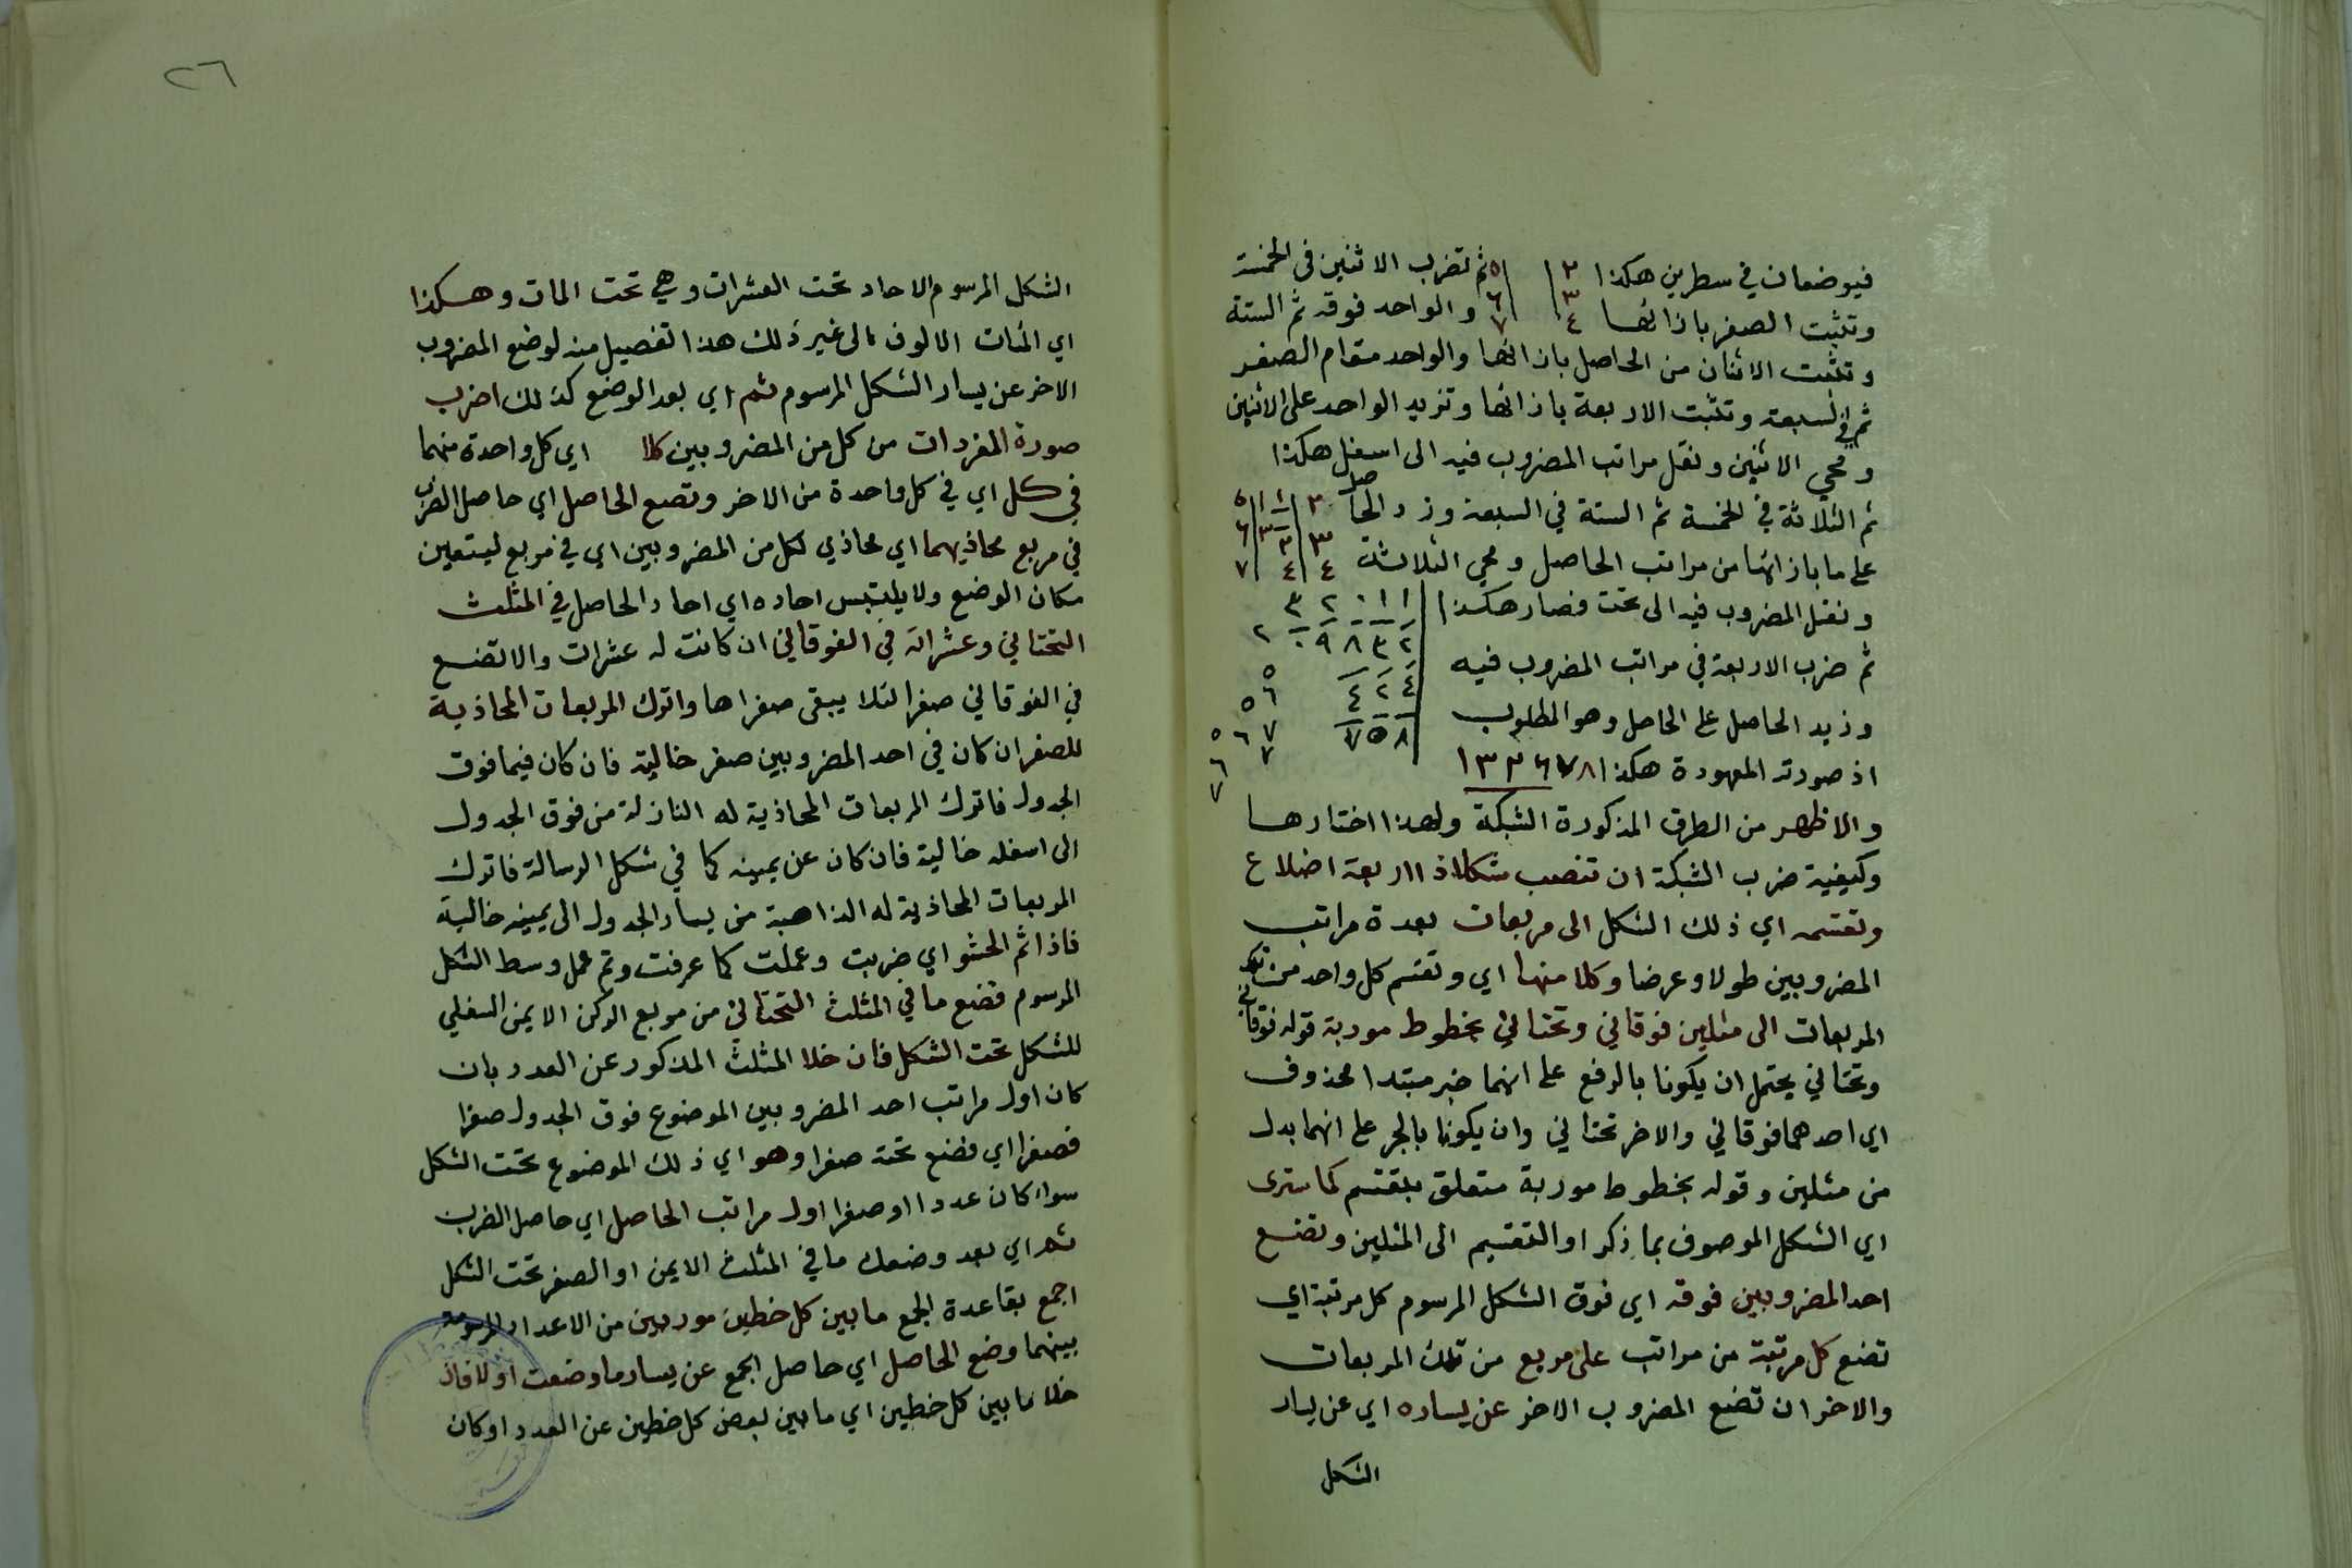 فيوضعان في سطرين هكذا ٢ ٥ ثم تضرب الاثنين في الخمسة
وتثبت الصفر بازائها ٣ ٦ والواحد فوقه ثم الستة
٤ ٧
وتثبت الاثنان من الحاصل بازائها والواحد مقام الصفر
ثم في السبعة وتثبت الاربعة بازائها وتزيد الواحد على الاثنين
ومحي الاثنين ونقل مراتب المضروب فيه الى اسفل هكذا
ثم الثلاثة في الخمسة ثم الستة في السبعة وزد الحاصل
على ما بازائها من مراتب الحاصل ومحي الثلاثة
ونقل المضروب فيه الى تحت فصار هكذا
ثم ضرب الاربعة في مراتب المضروب فيه
وزيد الحاصل على الحاصل وهو المطلوب
اذ صورته المعهودة هكذا ١٣٢٦٧٨
والاظهر من الطرق المذكورة الشبكة ولهذا اختارها
وكيفية ضرب الشبكة ان تنصب شكلا ذا اربعة اضلاع
وتقسمه اي ذلك الشكل الى مربعات بعدة مراتب
المضروبين طولا وعرضا وكلا منها اي وتقسم كل واحد من تلك
المربعات الى مثلين فوقاني وتحتاني بخطوط موربة قوله فوقاني
وتحتاني يحتمل ان يكونا بالرفع على انهما خبر مبتدا محذوف
اي احدهما فوقاني والاخر تحتاني وان يكونا بالجر على انهما بدل
من مثلين وقوله بخطوط موربة متعلق بتقسم كما سترى
اي الشكل الموصوف بما ذكر او التقسيم الى المثلين وتضع
احد المضروبين فوقه اي فوق الشكل المرسوم كل مرتبة اي
تضع كل مرتبة من مراتب على مربع من تلك المربعات
والاخر ان تضع المضروب الاخر عن يساره اي عن يسار
الشكل
٢٦
الشكل المرسوم الاحاد تحت العشرات وهي تحت المات وهكذا
اي المئات الالوف الى غير ذلك هذا تفصيل منه لوضع المضروب
الاخر عن يسار الشكل المرسوم ثم اي بعد الوضع كذلك اضرب
صورة المفردات من كل من المضروبين كلا اي كل واحدة منهما
في كل اي في كل واحدة من الاخر وتضع الحاصل اي حاصل الضرب
في مربع محاذيهما اي محاذي لكل من المضروبين اي في مربع ليتعين
مكان الوضع ولا يلتبس احاده اي احاد الحاصل في المثلث
التحتاني وعشراته في الفوقاني ان كانت له عشرات والا تضع
في الفوقاني صفرا لئلا يبقى صفراها واترك المربعات المحاذية
للصفر ان كان في احد المضروبين صفر خالية فان كان فيما فوق
الجدول فاترك المربعات المحاذية له النازلة من فوق الجدول
الى اسفله خالية فان كان عن يمينه كما في شكل الرسالة فاترك
المربعات المحاذية له الذاهبة من يسار الجدول الى يمينه خالية
فاذا تم الحشو اي ضربت وعملت كما عرفت وتم عمل وسط الشكل
المرسوم فضع ما في المثلث التحتاني من مربع الركن الايمن السفلي
للشكل تحت الشكل فان خلا المثلث المذكور عن العدد بان
كان اول مراتب احد المضروبين الموضوع فوق الجدول صفرا
فصفرا اي فضع تحته صفرا وهو اي ذلك الموضوع تحت الشكل
سواء كان عددا او صفرا اول مراتب الحاصل اي حاصل الضرب
ثم اي بعد وضعك ما في المثلث الايمن او الصفر تحت الشكل
اجمع بقاعدة الجمع ما بين كل خطين موربين من الاعداد المرسومة
بينهما وضع الحاصل اي حاصل الجمع عن يسار ما وضعت اولا فان
خلا ما بين كل خطين اي ما بين بعض كل خطين عن العدد او كان